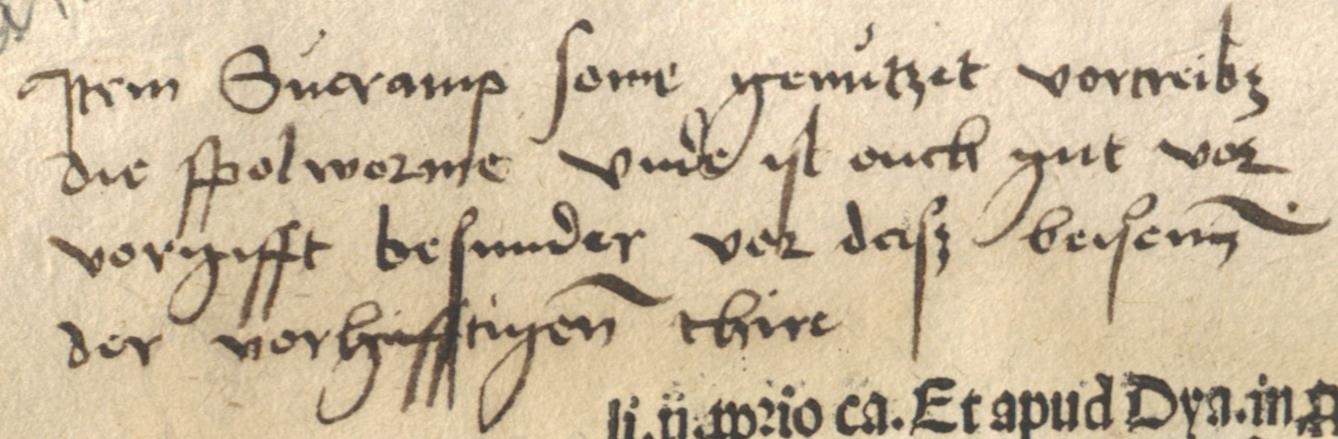 Item Sucramp some genutzet vortreibz
die spolworme vnde ist ouch gut vor
vorgifft besunder vor dasz beisenn
der vorgifftigenn thire
ca. Et apud Dya. in